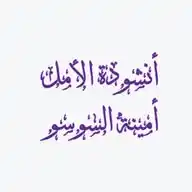 أنشودة الأمل
أمينة السوسو